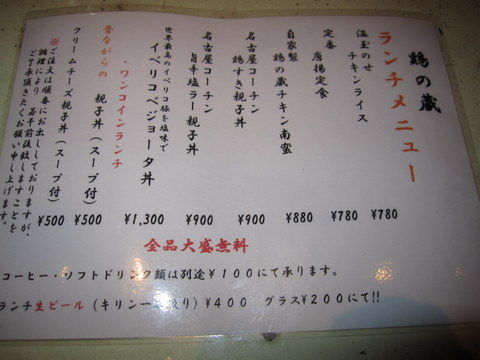 鶏の蔵
ランチメニュー
温玉のせ
チキンライス
¥780
定番
唐揚定食
¥780
自家製
鶏の蔵チキン南蛮
¥880
名古屋コーチン
鶏すき親子丼
¥900
名古屋コーチン
旨辛塩ラー親子丼
¥900
世界最高のイベリコ豚を塩味で
イベリコベジョータ丼
¥1,300
・ワンコインランチ
昔ながらの
親子丼(スープ付)
¥500
クリームチーズ親子丼(スープ付)
¥500
※ご注文は順番にお出ししておりますが、
調理により、若干前後致しますことを
ご了承頂きたくお願い申し上げます。
全品大盛無料
コーヒー・ソフトドリンク類は別途¥100にて承ります。
ランチ生ビール(キリン一番搾り)¥400 グラス¥200にて!!